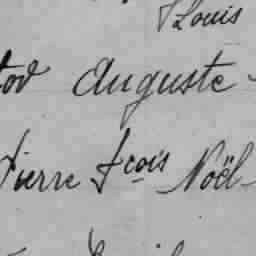 Louis
Auguste
Pierre fçois Noël